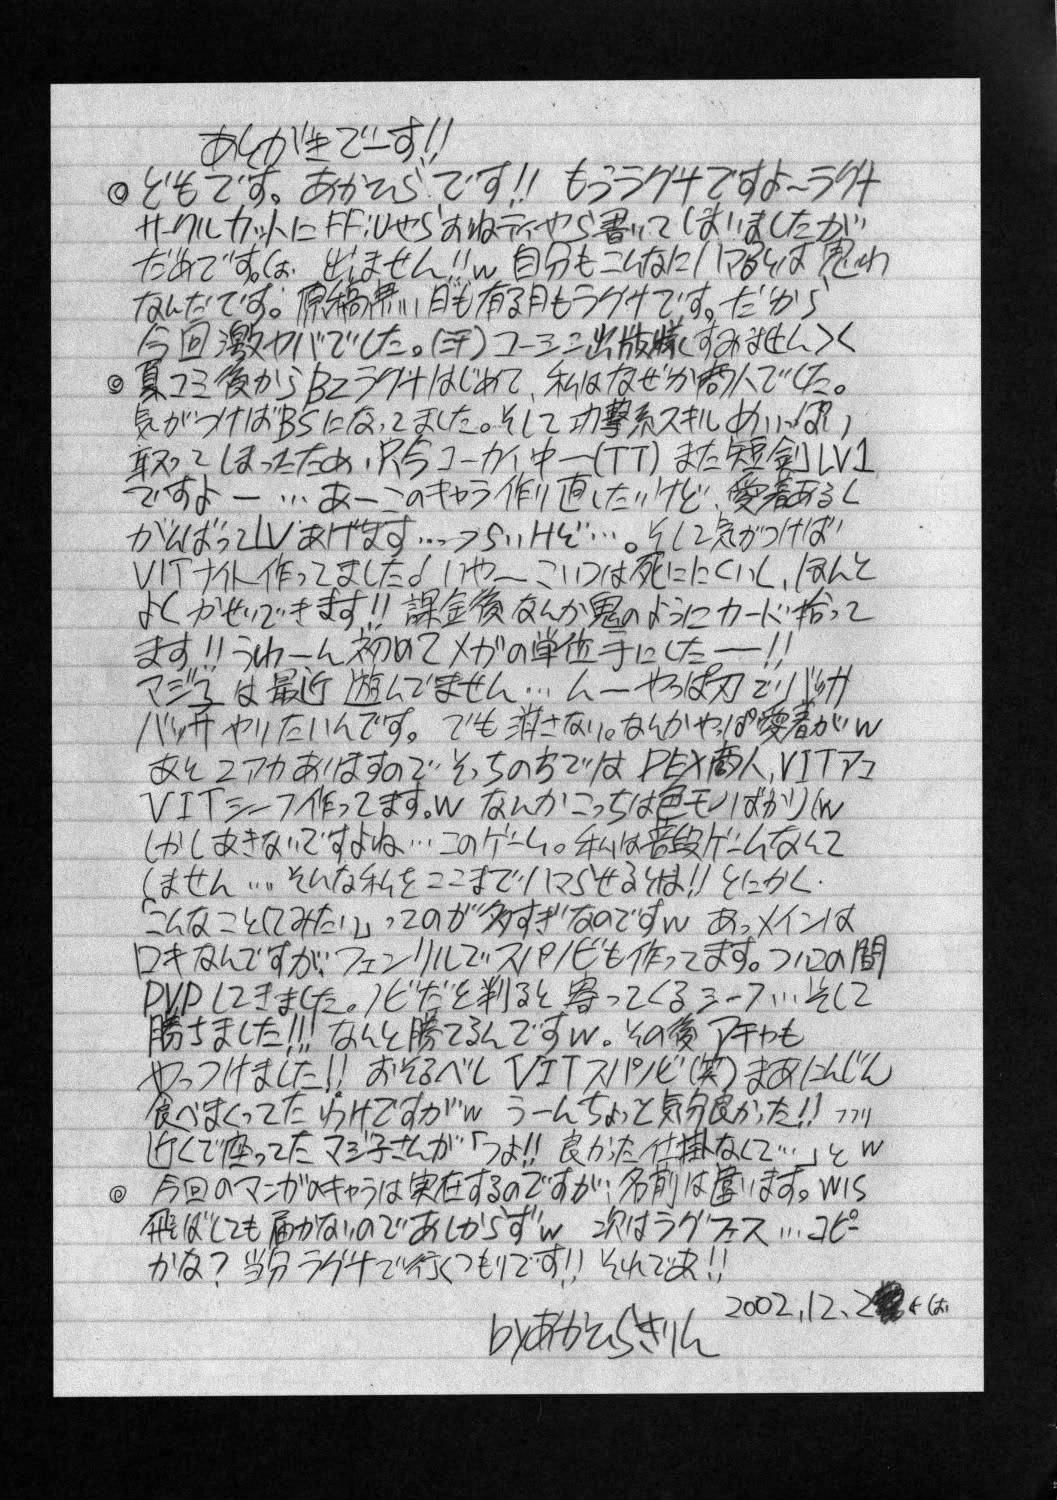 あとがきでーす!!
◎ どもです。あかひらです!! もうラグナですよ〜ラグナ
サークルカットにFFⅣやらおねティやら書いてしまいましたが
だめです。 出ません!!w 自分もこんなにハマるとは思わ
なんだです。原稿無い月も有る月もラグナです。だから
今回激ヤバでした。(汗) コーシン出版様すみません><
◎ 夏コミ後からB2ラグナはじめて、私はなぜか商人でした。
気がつけばBSになってました。そして攻撃系スキルめいっぱい
取ってしまったため、只今コーカイ中〜(TT) また短剣LV1
ですよー…あーこのキャラ作り直したいけど、愛着あるし
がんばってLVあげます…つらいけど…。そして気がつけば
VITナイト作ってました♪いや〜こいつは死ににくいし、ほんと
よくかせいできます!! 課金後なんか鬼のようにカード拾って
ます!! うわーん初めてメガの単位手にしたー!!
マジ子は最近遊んでません…んーやっぱ刃でバッサ
バッサやりたいんです。でも消さない。なんかやっぱ愛着がw
あと2アカありますので そっちの方では DEX商人、VITアコ
VITシーフ作ってます。w なんかこっちは色モノばかり(w
しかしあきないですよね…このゲーム。私は普段ゲームなんて
しません…そんな私をここまでハマらせるとは!! とにかく
「こんなことしてみたい」ってのが多すぎなのですw あっメインは
ロキなんですが、フェンリルでスパノビも作ってます。つい この間
PVPしてきました。ノビだと判ると寄ってくるシーフ…そして
勝ちました!!! なんと勝てるんですw。その後アチャも
やっつけました!! おそるべし VITスパノビ(笑) まあにんじん
食べまくってたわけですがw うーんちょっと気分良かった!!
近くで座ってたマジ子さんが「つよ!! 良かった仕掛なくて…」とw
◎ 今回のマンガのキャラは実在するのですが、名前は違います。WIS
飛ばしても届かないのであしからずw 次はラグフェス…コピー
かな? 当分ラグナで行くつもりです!! それであ!!
2002.12.2
byあかひらきりん